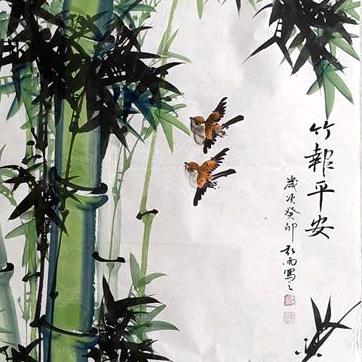 竹報平安
歲次癸卯
彩雨寫之